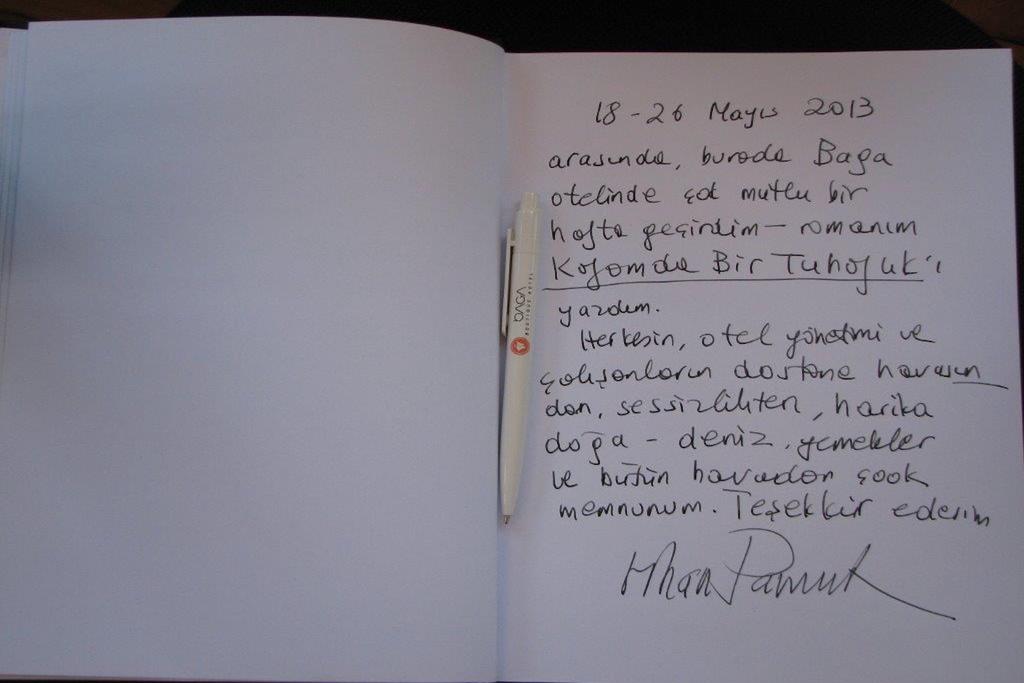 18 - 26 Mayıs 2013
arasında, burada Baga
otelinde çok mutlu bir
hafta geçirdim — romanım
Kafamda Bir Tuhaflık'ı
yazdım.
Herkesin, otel yönetimi ve
çalışanların dostane havasın
dan, sessizlikten, harika
doğa - deniz, yemekler
ve bütün havadan çook
memnunum. Teşekkür ederim
Orhan Pamuk